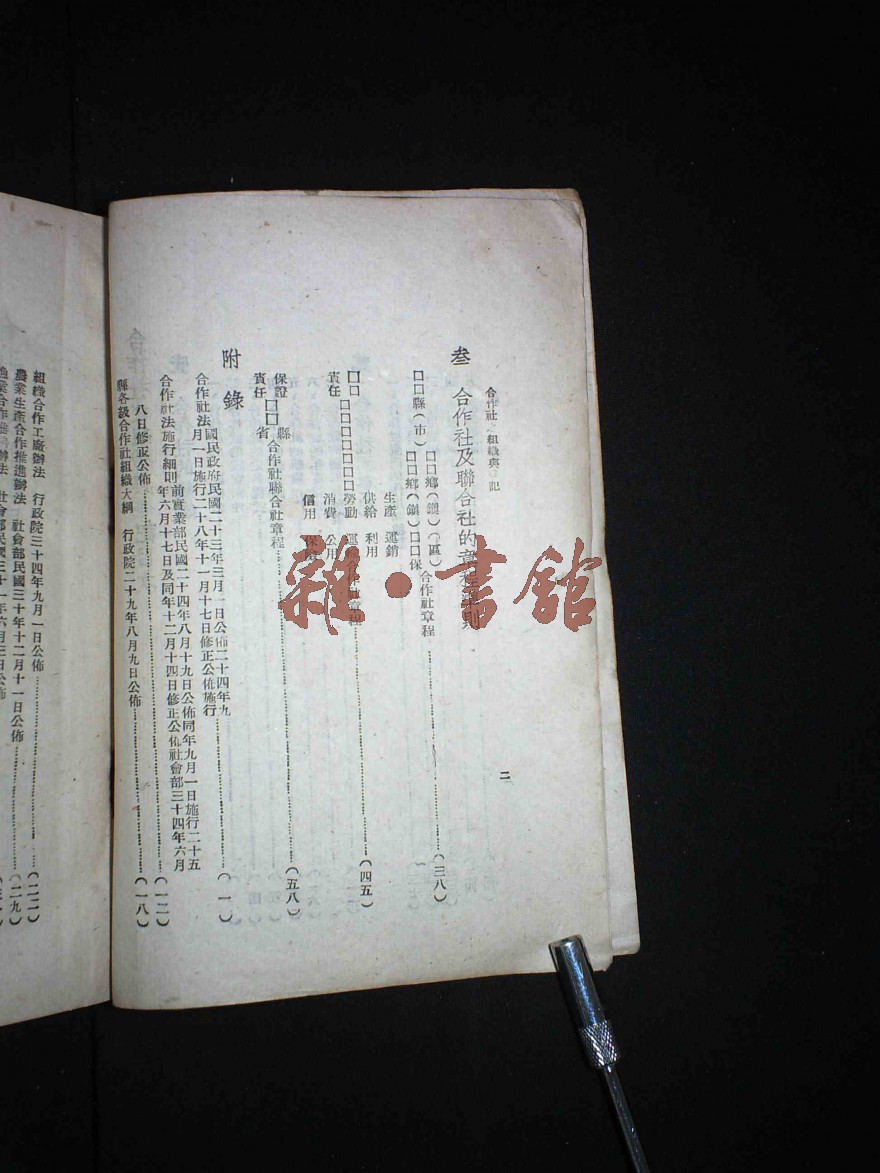 合作社 組織與 記
二
叁 合作社及聯合社的章程 則
□□縣(市)□□鄉(鎮)(區)合作社章程……(三八)
□□鄉(鎮)□□保
生產 運銷
供給 利用
□□ □□□□□□□勞動 運 合作社章程……(四五)
責任
消費 公用
信用 保
保證 □□縣合作社聯合社章程……(五八)
責任 省
附 錄
合作社法 國民政府民國二十三年三月一日公佈二十四年九月一日施行二十八年十一月十七日修正公佈施行……(一)
合作社法施行細則 前實業部民國二十四年八月十九日公佈同年九月一日施行二十五年六月十七日及同年十二月十四日修正公佈社會部三十四年六月
八日修正公佈……(一二)
縣各級合作社組織大綱 行政院二十九年八月九日公佈……(一八)
組織合作工廠辦法 行政院三十四年九月一日公佈……(二二)
農業生產合作推進辦法 社會部民國三十年十二月十一日公佈……(二九)
漁業合作推 辦法 社會部民國三十一年六月三日公佈
雜·書館